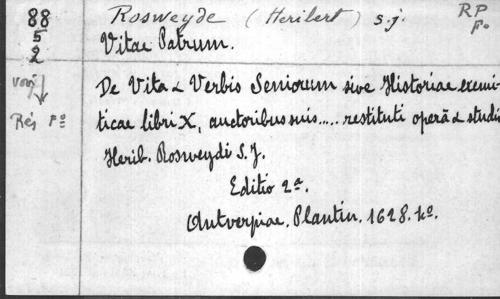 88 Rosweyde (Heribert) s.j. RP
5 Fo
2 Vitae Patrum.
voy De Vita & Verbis Seniorum sive Historiae eremi-
Rés Fo ticae libri X, auctoribus suis..... restituti operâ & studio
Herib. Rosweydi S.J.
Editio 2a.
Antverpiae. Plantin. 1628. fo.